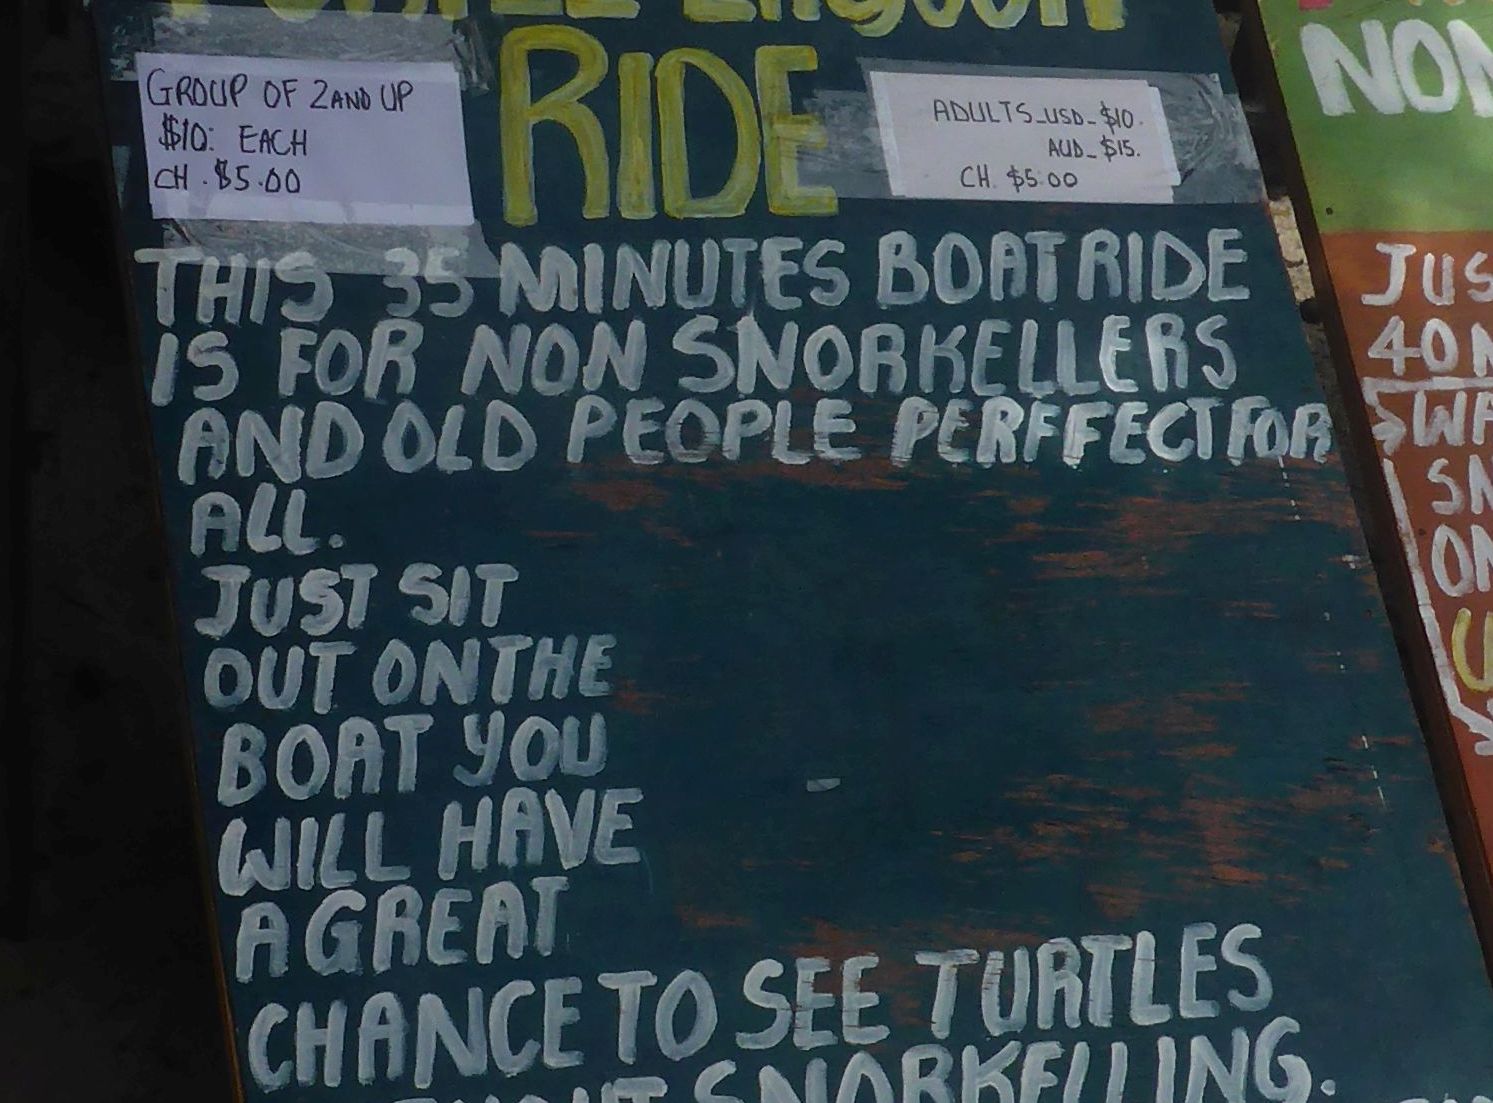 LAGOON
RIDE
GROUP OF 2 AND UP
$10: EACH
CH. $5.00
ADULTS_USD_$10.
AUD_$15.
CH. $5.00
THIS 35 MINUTES BOAT RIDE
IS FOR NON SNORKELLERS
AND OLD PEOPLE PERFFECT FOR
ALL.
JUST SIT
OUT ON THE
BOAT YOU
WILL HAVE
A GREAT
CHANCE TO SEE TURTLES
SNORKELLING.
NON
JUS
40
ON